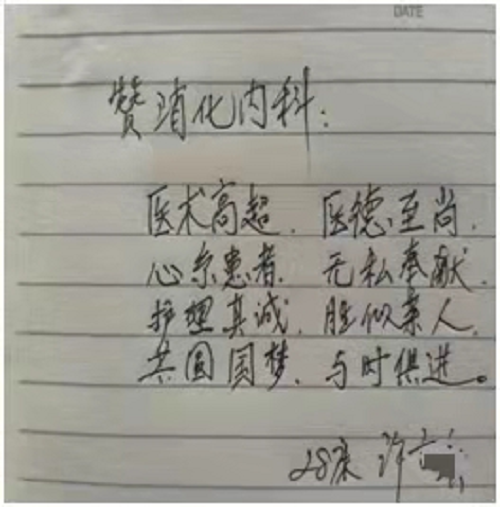 DATE
赞消化内科:
医术高超. 医德至尚.
心系患者. 无私奉献.
护理真诚. 胜似亲人.
共圆国梦. 与时俱进。
28床 许